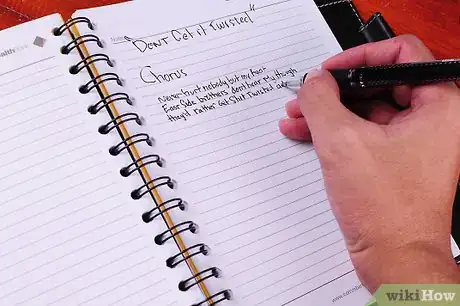 Notes
"DON'T Get it Twisted"
Chorus
never trust nobody but my
East Side brothers don't hear me though
they'd rather Get Shit Twisted
wikiHow